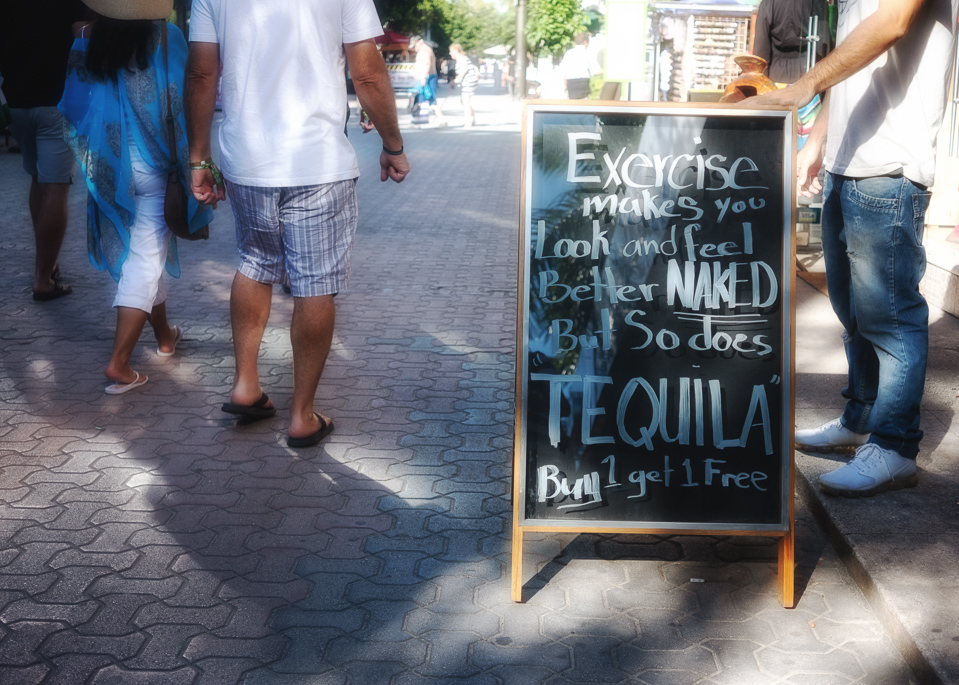 Exercise
makes you
Look and feel
Better NAKED
But So does
"TEQUILA"
Buy 1 get 1 Free